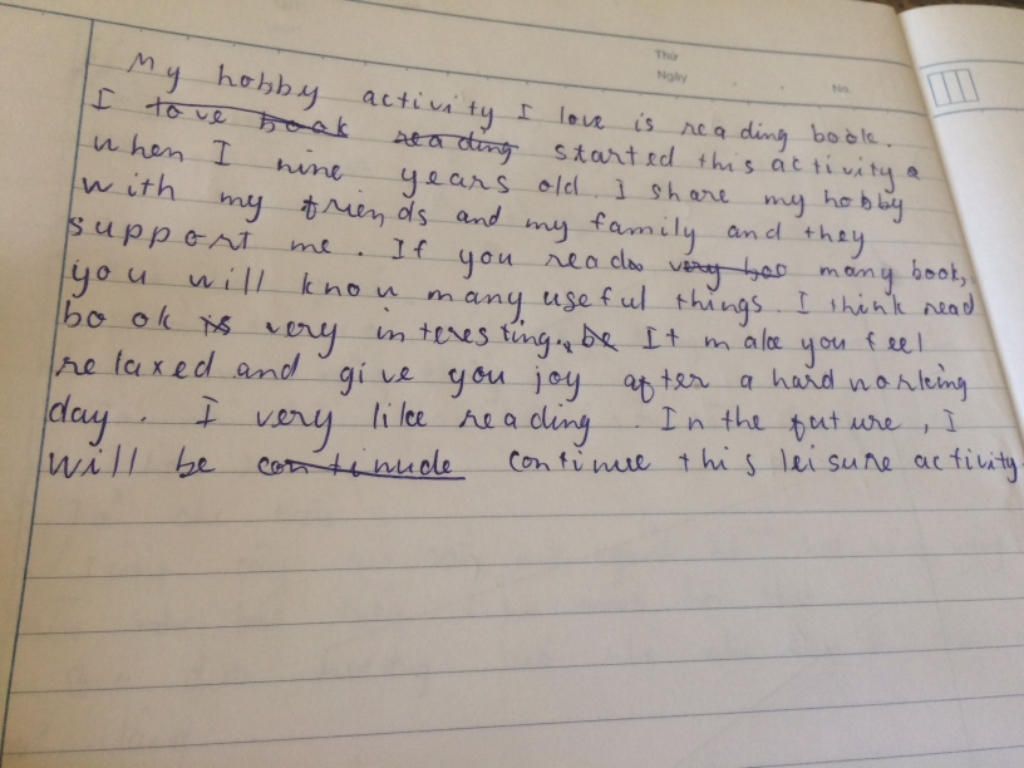 Thứ
Ngày
No.
My hobby activity I love is reading book.
I love book reading started this activity
when I nine years old. I share my hobby
with my friends and my family and they
support me. If you read very many book,
you will know many useful things. I think read
book is very interesting. be It make you feel
relaxed and give you joy after a hard working
day. I very like reading. In the future, I
will be continude continue this leisure activity.